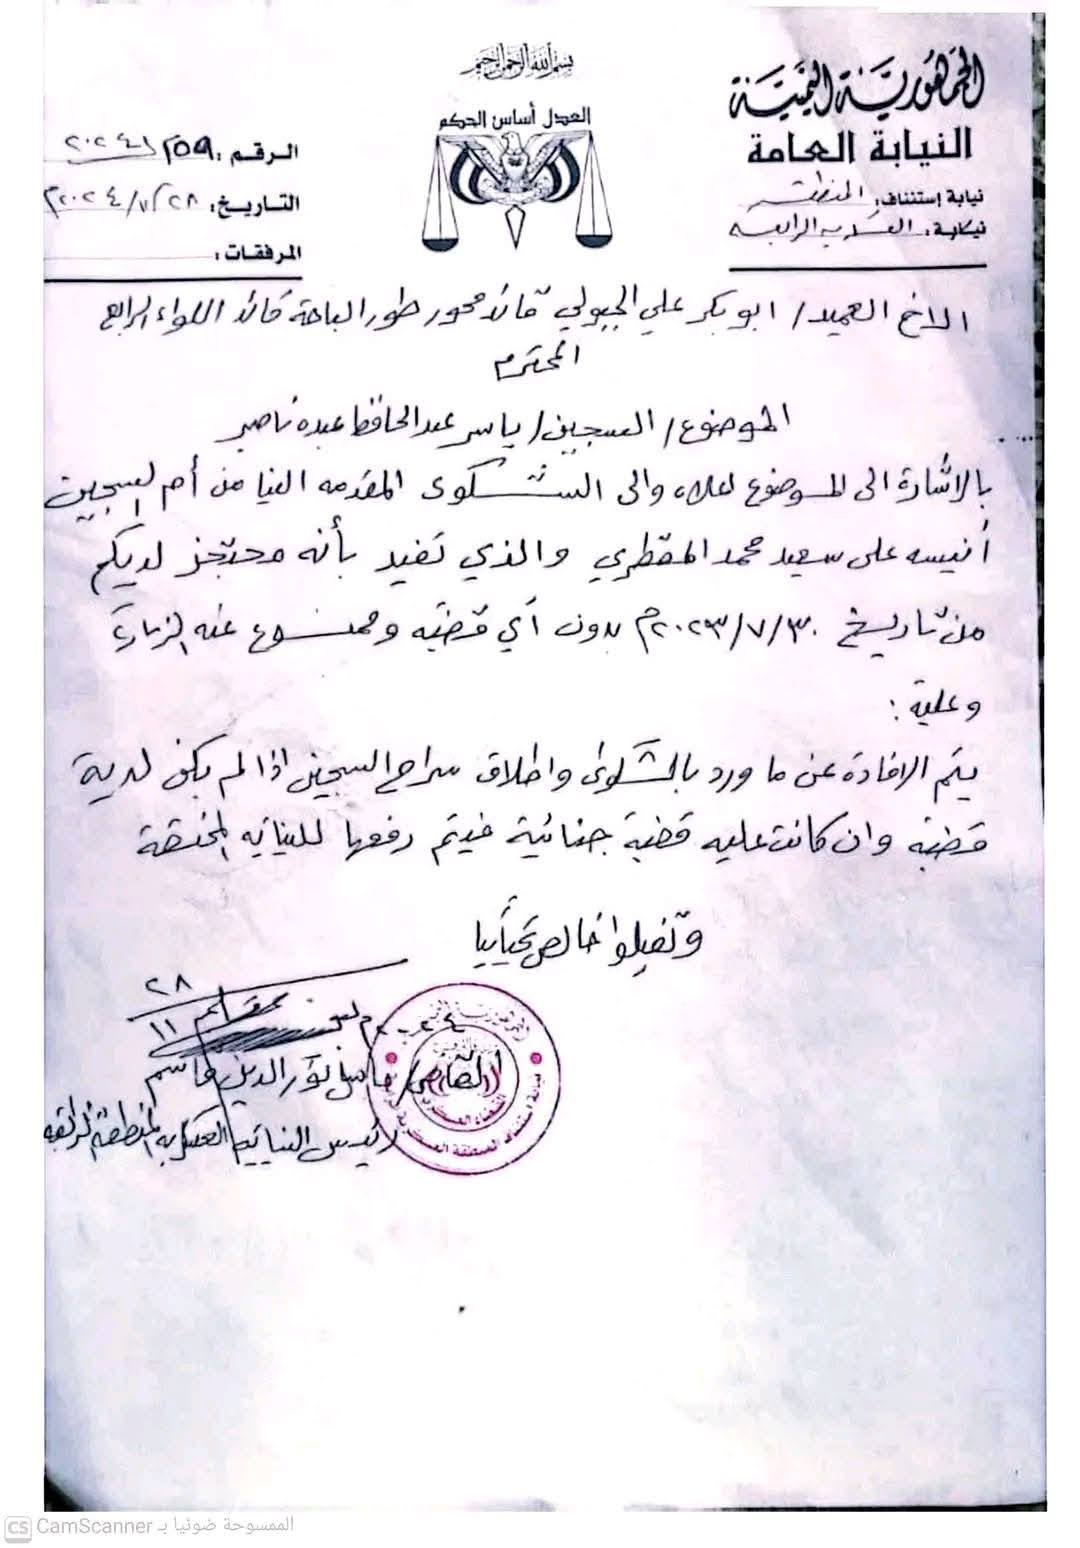 بسم الله الرحمن الرحيم
العدل أساس الحكم
الجمهورية اليمنية
النيابة العامة
نيابة إستئناف: المنطقة
نيابة: العسكرية الرابعة
الرقم: ٢٥٩ / ٢٠٢٤
التاريخ: ٢٨/٧/٢٠٢٤م
المرفقات:
الاخ العميد/ ابوبكر علي الجبولي قائد محور طور الباحة قائد اللواء الرابع
المحترم
الموضوع/ السجين/ ياسر عبدالحافظ عبده ناصر
بالاشارة الى الموضوع اعلاه والى الشكوى المقدمه الينا من أم السجين
أنيسه على سعيد محمد المقطري والذي تفيد بأنه محتجز لديكم
من تاريخ ٣٠/٧/٢٠٢٣م بدون أي قضيه وممنوع عنه الزيارة
وعلية:
يتم الافادة عن ما ورد بالشكوى واطلاق سراح السجين اذا لم يكن لدية
قضيه وان كانت عليه قضية جنائية فيتم رفعها للنيابه المختصة
وتقبلوا خالص تحياتنا
٢٨
١١
القاضي/ نور الدين قاسم
رئيس النيابة العسكريه المنطقة الرابعة
CS CamScanner الممسوحة ضوئيا بـ